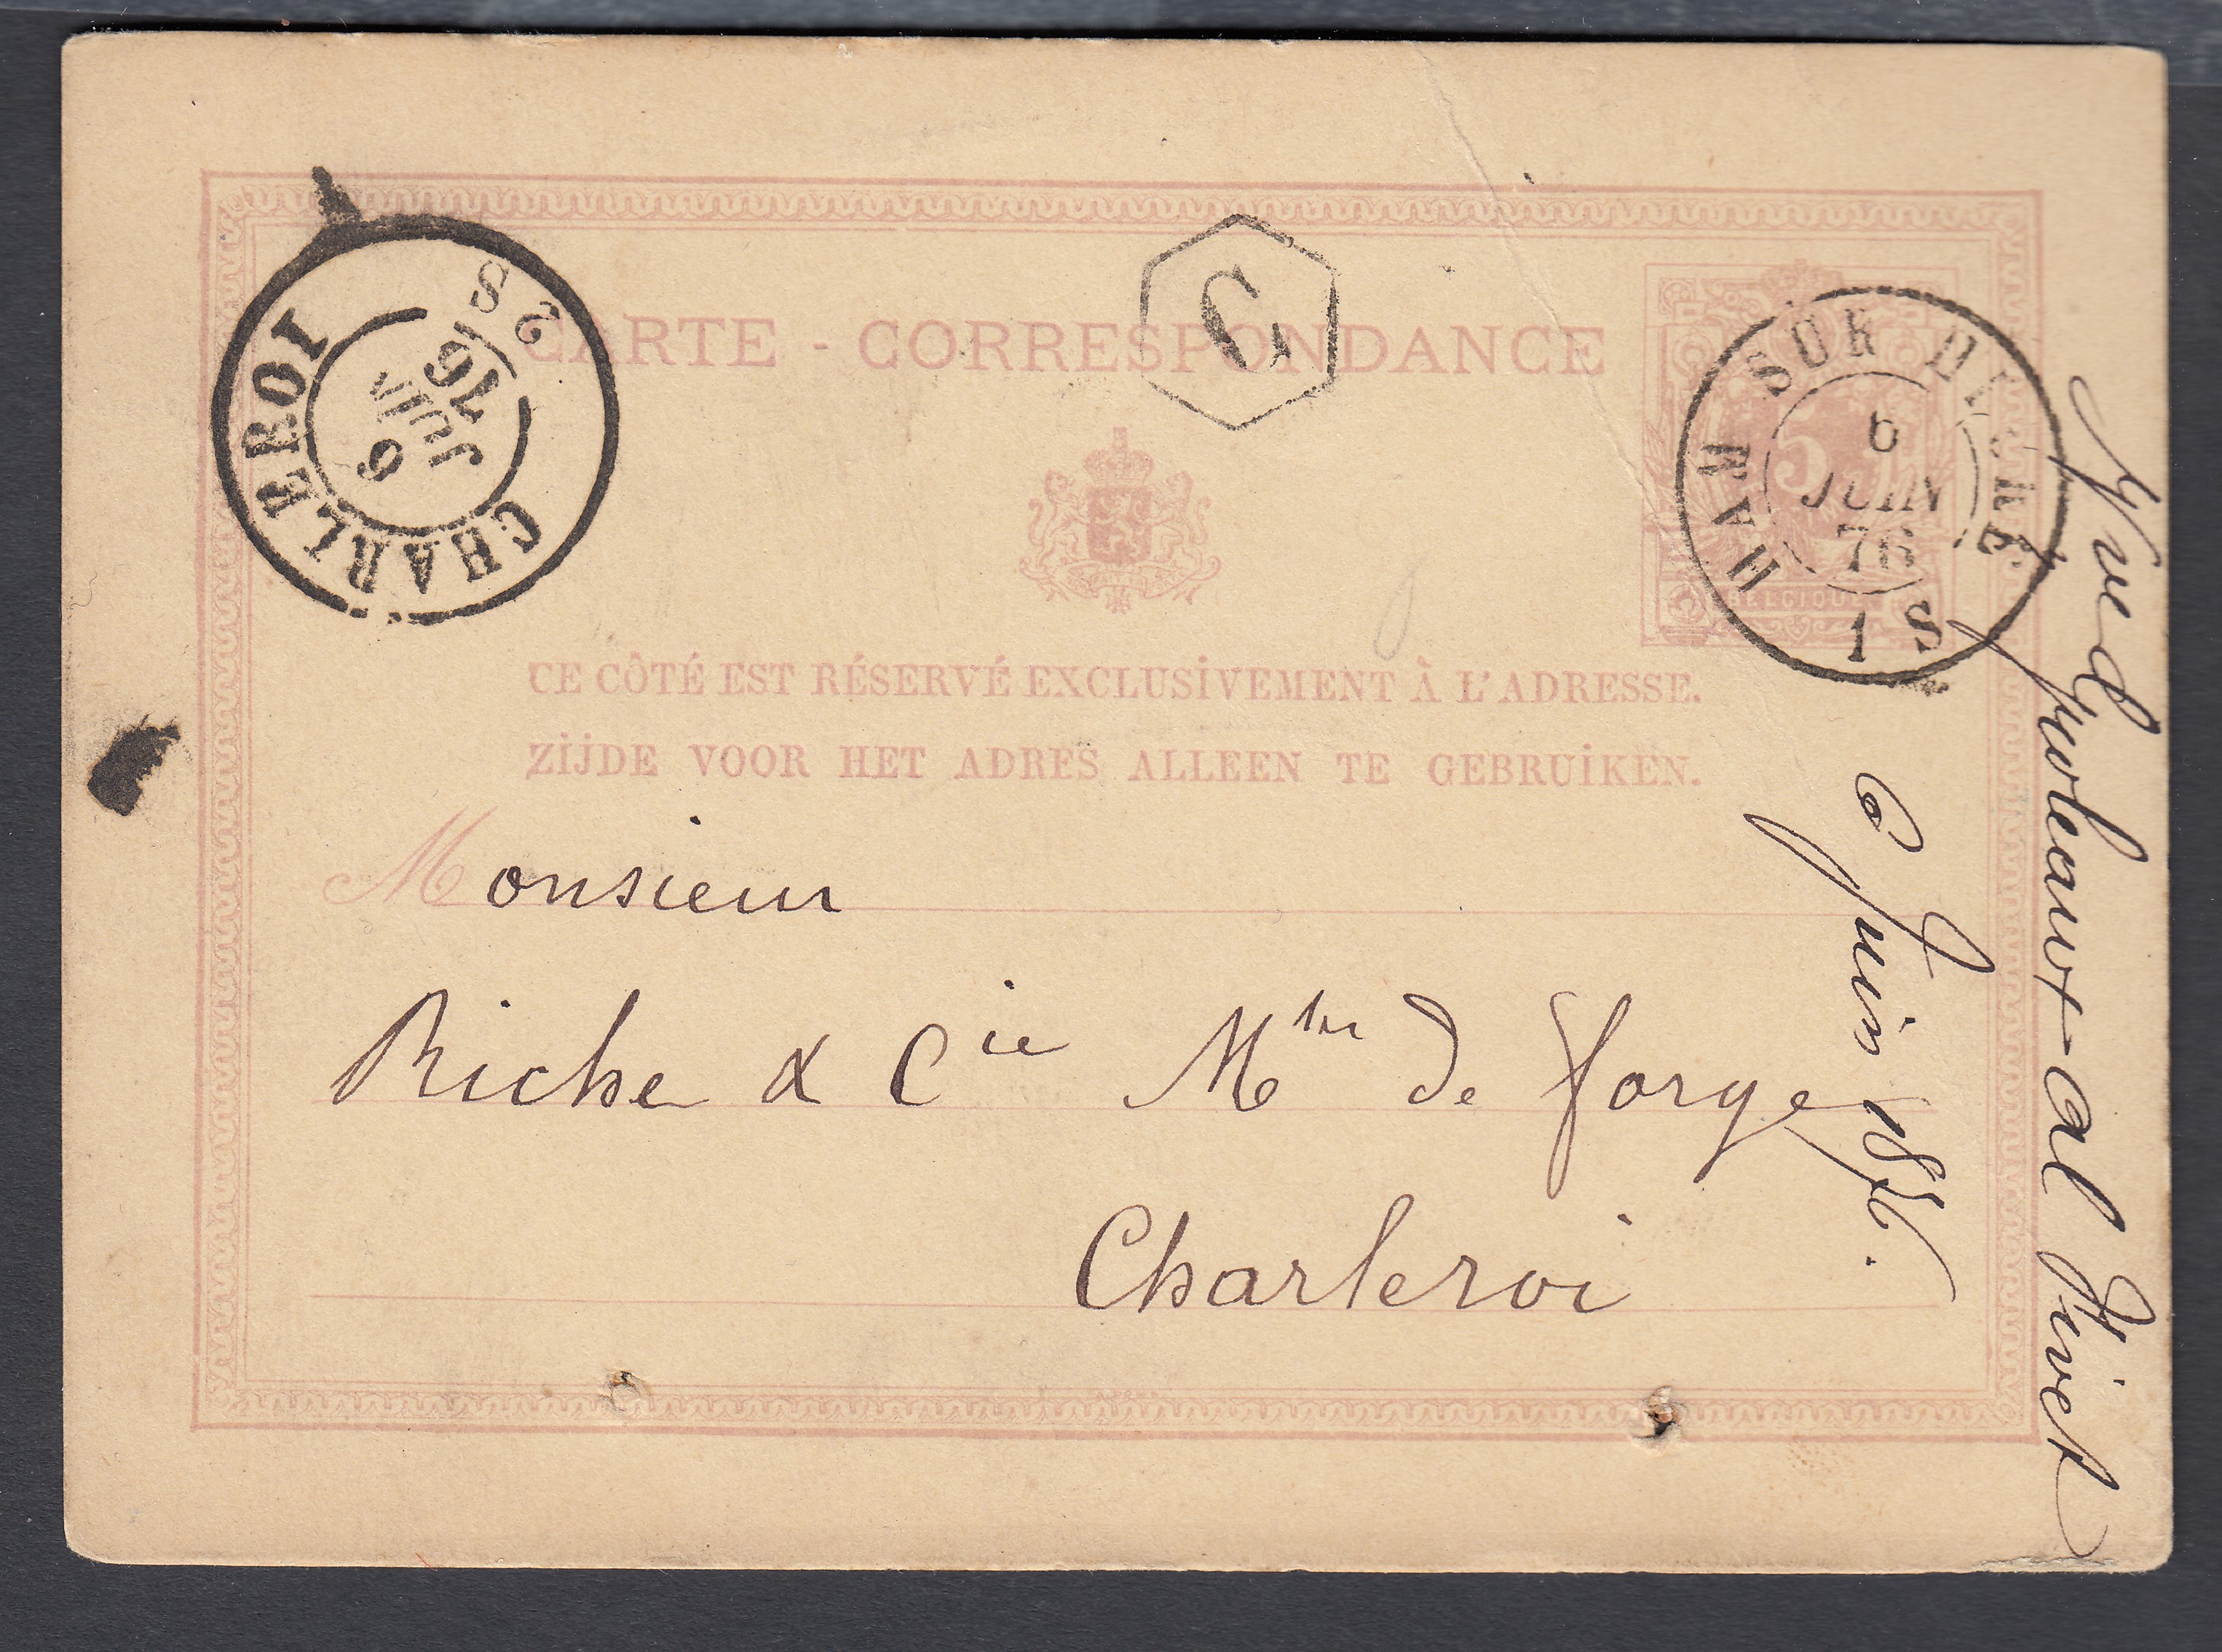 CARTE - CORRESPONDANCE
C
CHARLEROI
6
JUIN
76
2 S
HAM SUR HEURE
6
JUIN
76
1 S
5
BELGIQUE
CE CÔTÉ EST RÉSERVÉ EXCLUSIVEMENT À L'ADRESSE.
ZIJDE VOOR HET ADRES ALLEEN TE GEBRUIKEN.
Monsieur
Riche & Cie Mtre de forge
Charleroi
6 Juin 1876.